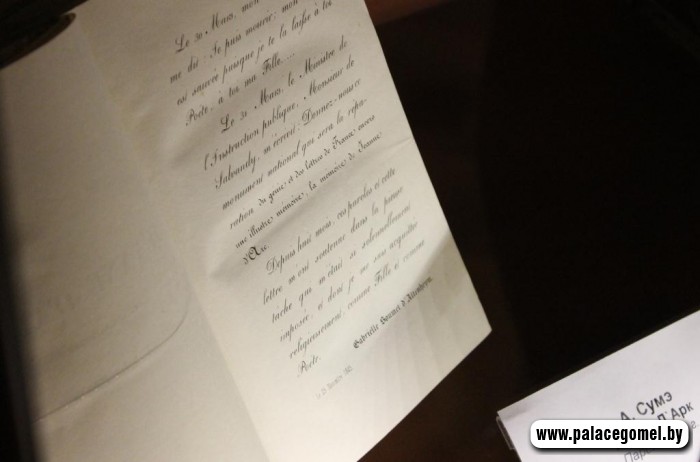 Le 30 Mars, mon
me dit: Je puis mourir; mon
est sauvée puisque je te la laisse à toi,
Poète, à toi, ma Fille....
Le 31 Mars, le Ministre de
l'Instruction publique, Monsieur de
Salvandy, m'écrivit: Donnez-nous ce
monument national qui sera la répa-
ration du génie et des lettres de France envers
une illustre mémoire, la mémoire de Jeanne
d'Arc.
Depuis huit mois, ces paroles et cette
lettre m'ont soutenue dans la pieuse
tâche qui m'était si solennellement
imposée, et dont je me suis acquittée
religieusement, comme Fille et comme
Poète.
Gabrielle Soumet d'Altenheym.
А. Сумэ
Д'Арк
www.palacegomel.by